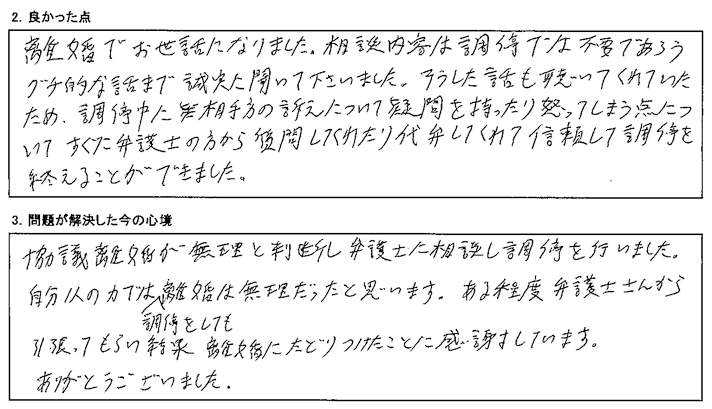 2. 良かった点
離婚でお世話になりました。相談内容は調停では不要であろう
グチ的な話まで誠実に聞いて下さいました。そうした話も聴いてくれていた
ため、調停中に相手方の訴えについて疑問を持ったり怒ってしまう点につ
いてすぐに弁護士の方から質問してくれたり代弁してくれて信頼して調停を
終えることができました。
3. 問題が解決した今の心境
協議離婚が無理と判断し弁護士に相談し調停を行いました。
自分1人の力では離婚は無理だったと思います。ある程度弁護士さんから
調停をしても
引張ってもらい結果離婚にたどりつけたことに感謝しています。
ありがとうございました。